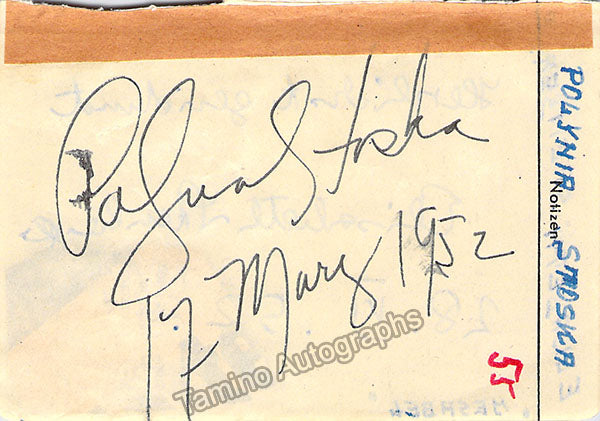 Polyna Stoska
17. März 1952
Tamino Autographs
POLYNIA STOSKA
Notizen
55